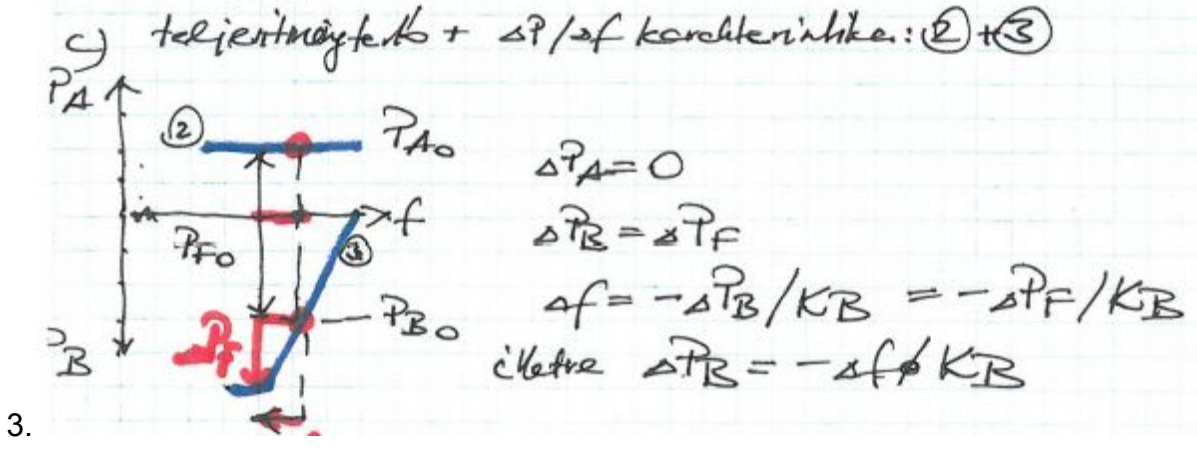 c) teljesítménytartó + ΔP/Δf karakterisztika: ② + ③
P_A
②
P_A0
ΔP_A = 0
f
P_F0
③
ΔP_B = ΔP_F
P_B0
Δf = -ΔP_B/K_B = -ΔP_F/K_B
P_B
ΔP_F
illetve ΔP_B = -Δf K_B
3.